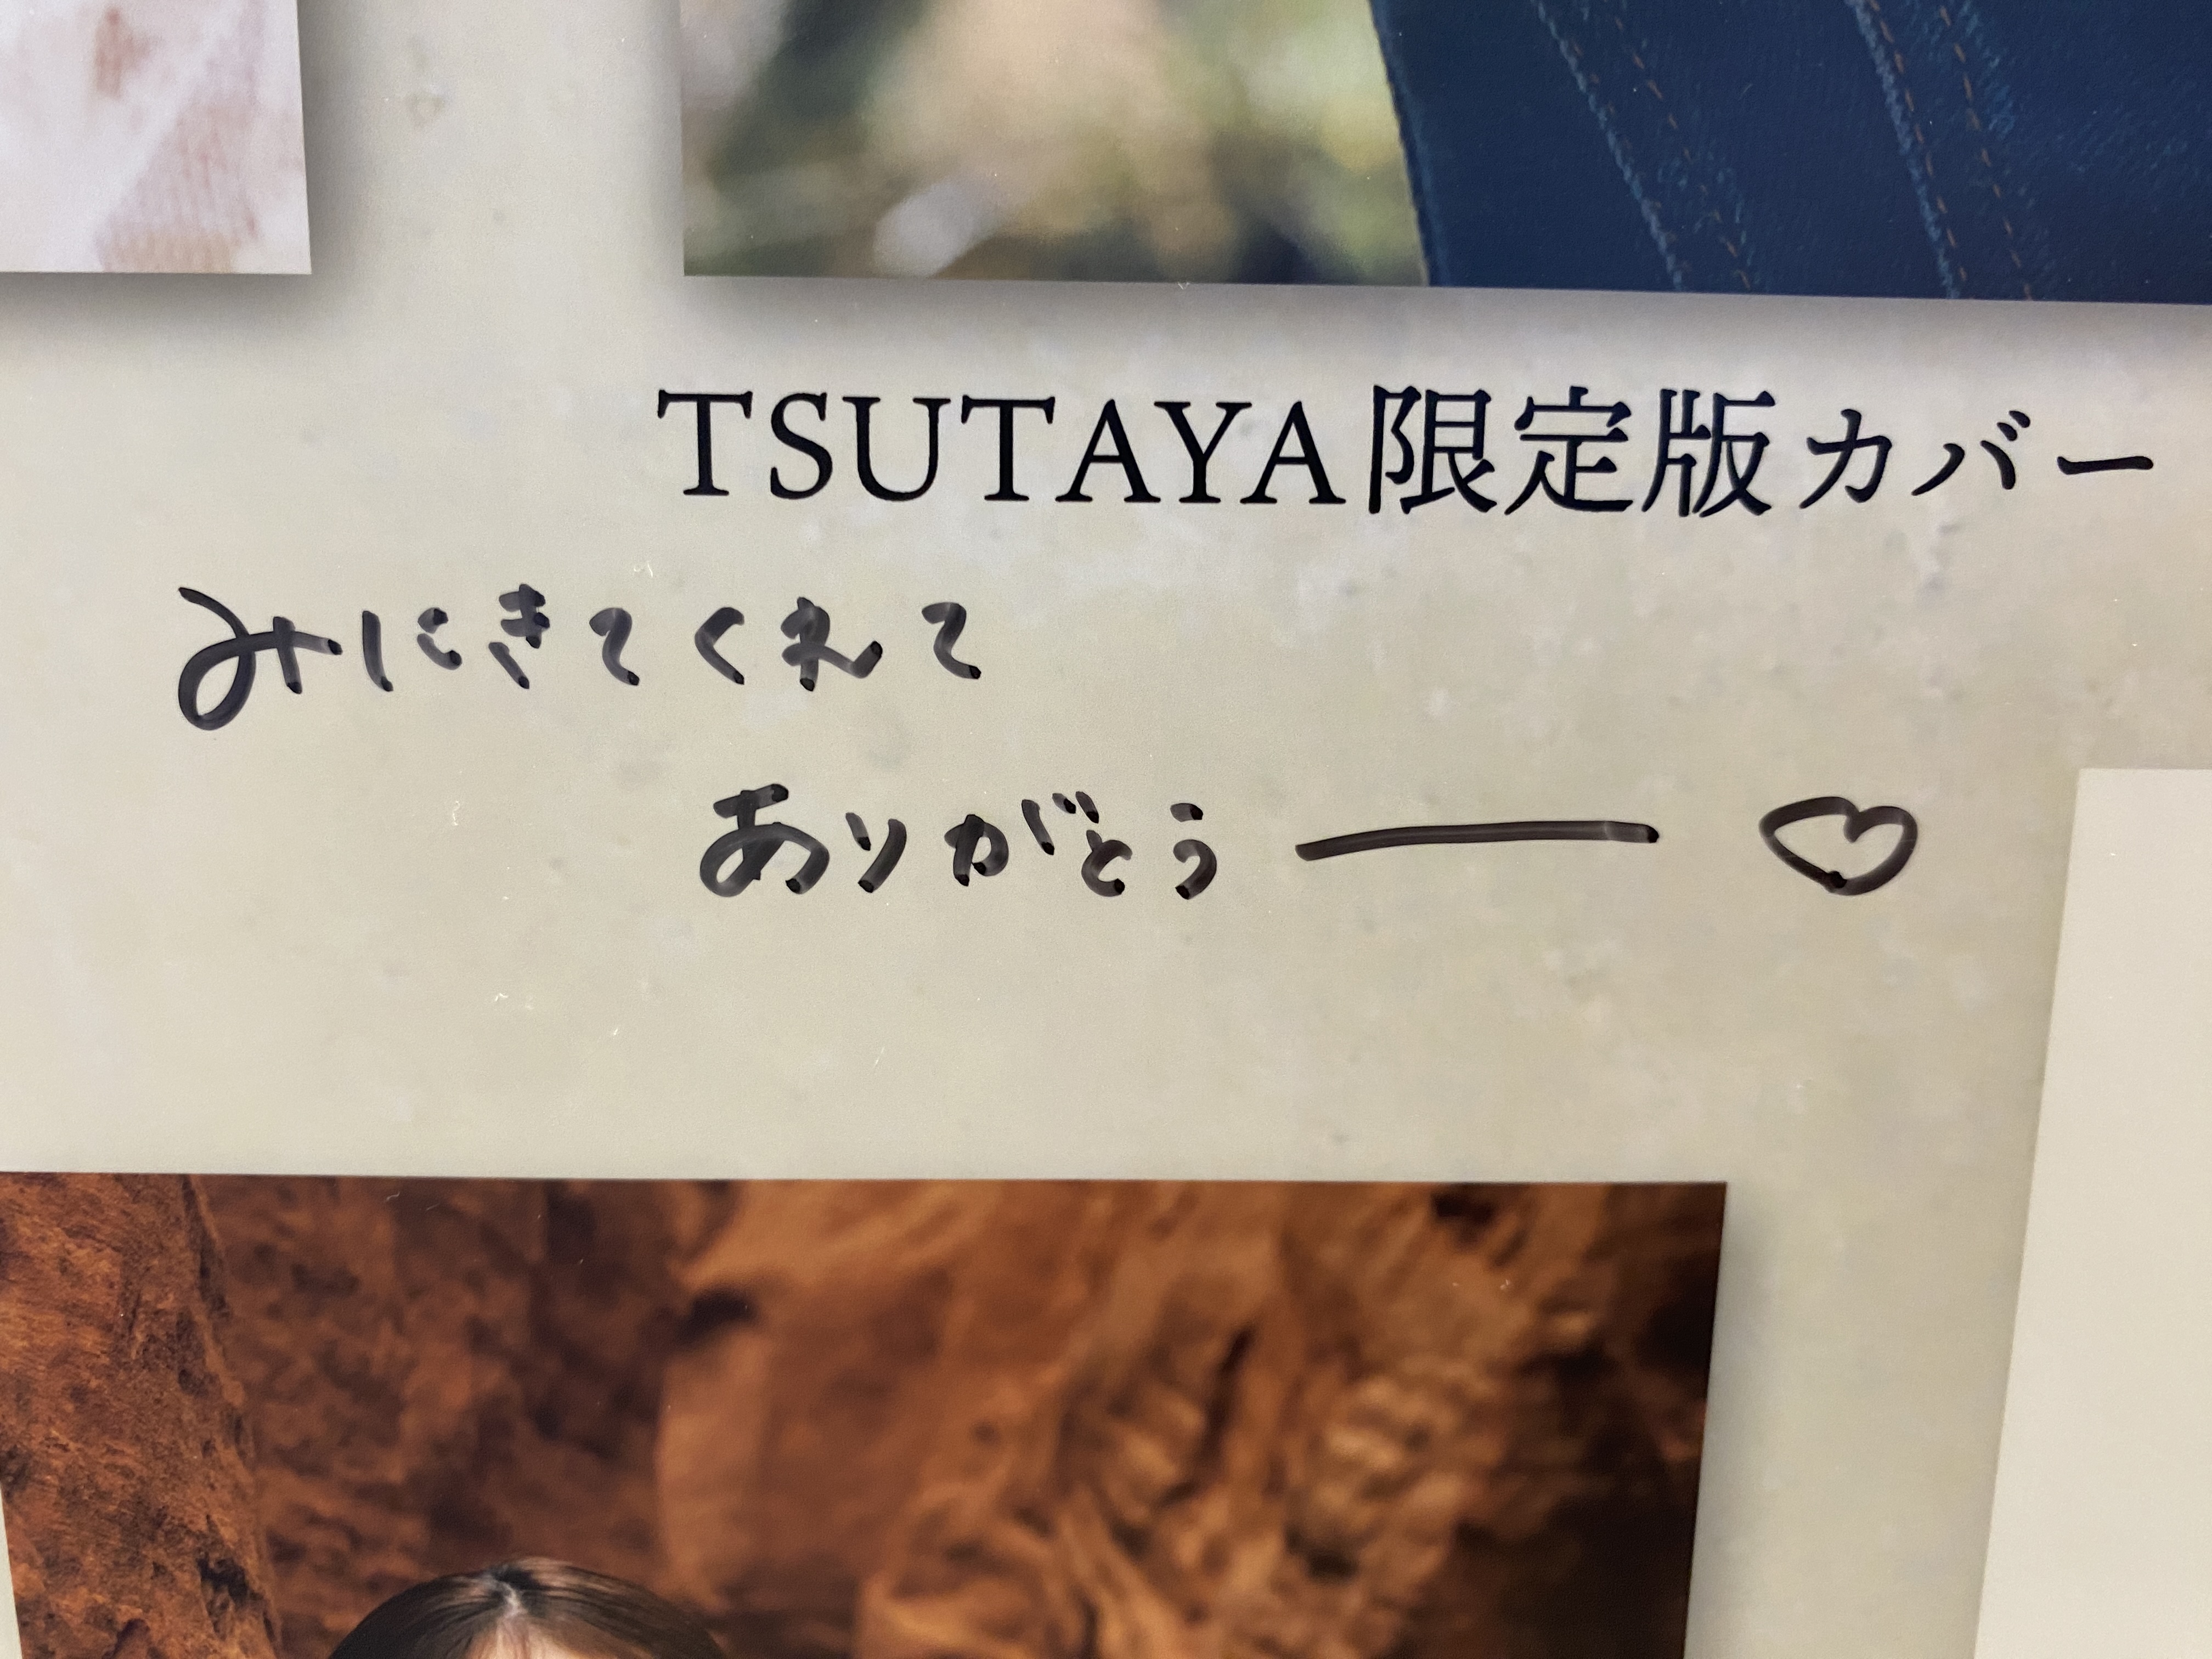 TSUTAYA限定版カバー
みにきてくれて
ありがとう――♡